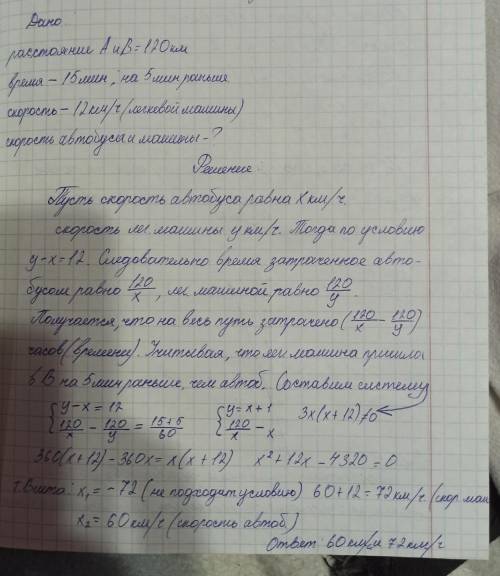 Дано
расстояние А и В = 120 км
время – 15 мин, на 5 мин раньше
скорость – 12 км/ч (легковой машины)
скорость автобуса и машины – ?
Решение:
Пусть скорость автобуса равна x км/ч.
скорость лег машины y км/ч. Тогда по условию
y-x=12. Следовательно время затраченное авто-
бусом равно 120/x, лег машиной равно 120/y.
Получается, что на весь путь затрачено (120/x - 120/y)
часов (времени). Учитывая, что лег машина пришла
в В на 5 мин раньше, чем автоб. Составим систему
{y-x=12 {y=x+1 3x(x+12)≠0
{120/x - 120/y = 15+5/60 {120/x - x
360(x+12)-360x=x(x+12) x²+12x-4320=0
т. Виета: x₁ = -72 (не подходит условию) 60+12=72 км/ч. (скор. маш
x₂ = 60 км/ч (скорость автоб.)
Ответ: 60 км/ч и 72 км/ч